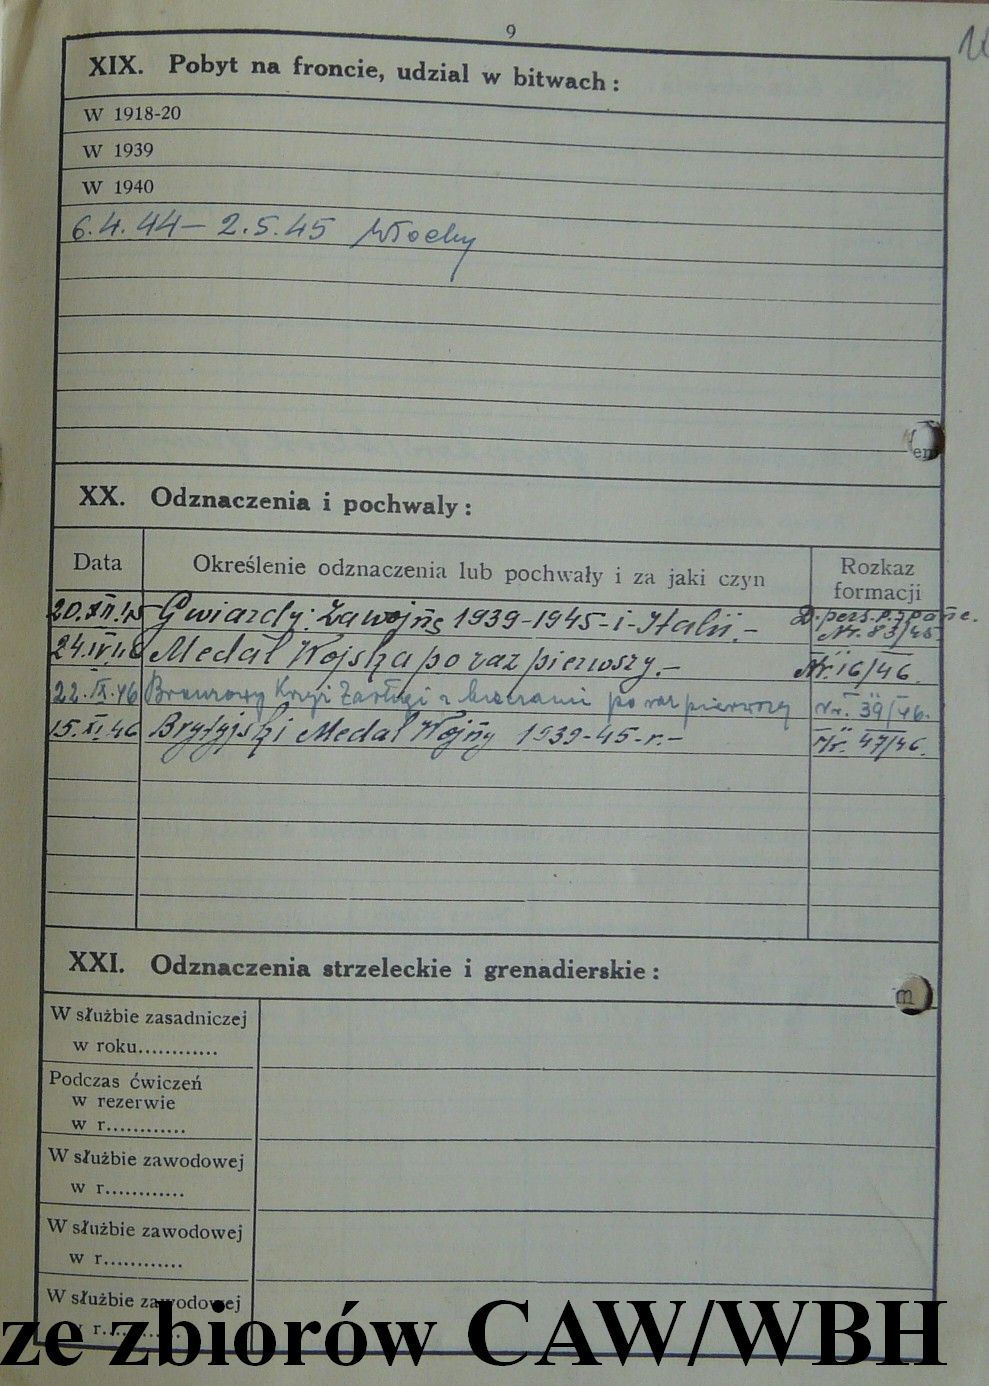 9
XIX. Pobyt na froncie, udzial w bitwach :
W 1918-20
W 1939
W 1940
6.4.44 – 2.5.45 Włochy
XX. Odznaczenia i pochwaly :
Data Określenie odznaczenia lub pochwały i za jaki czyn Rozkaz formacji
20.XII.45 Gwiazdy: Za wojnę 1939-1945-i-Italii.- D. pers. p. Nr. 83/45
24.IV.46 Medal Wojska po raz pierwszy.- Nr. 16/46.
22.IX.46 Bronzowy Krzyż Zasługi z Mieczami po raz pierwszy Nr. 39/46.
15.XI.46 Brytyjski Medal Wojny 1939-45-r.- Nr. 47/46.
XXI. Odznaczenia strzeleckie i grenadierskie :
W służbie zasadniczej
w roku............
Podczas ćwiczeń
w rezerwie
w r............
W służbie zawodowej
w r............
W służbie zawodowej
w r............
W służbie zawodowej
w r............
ze zbiorów CAW/WBH